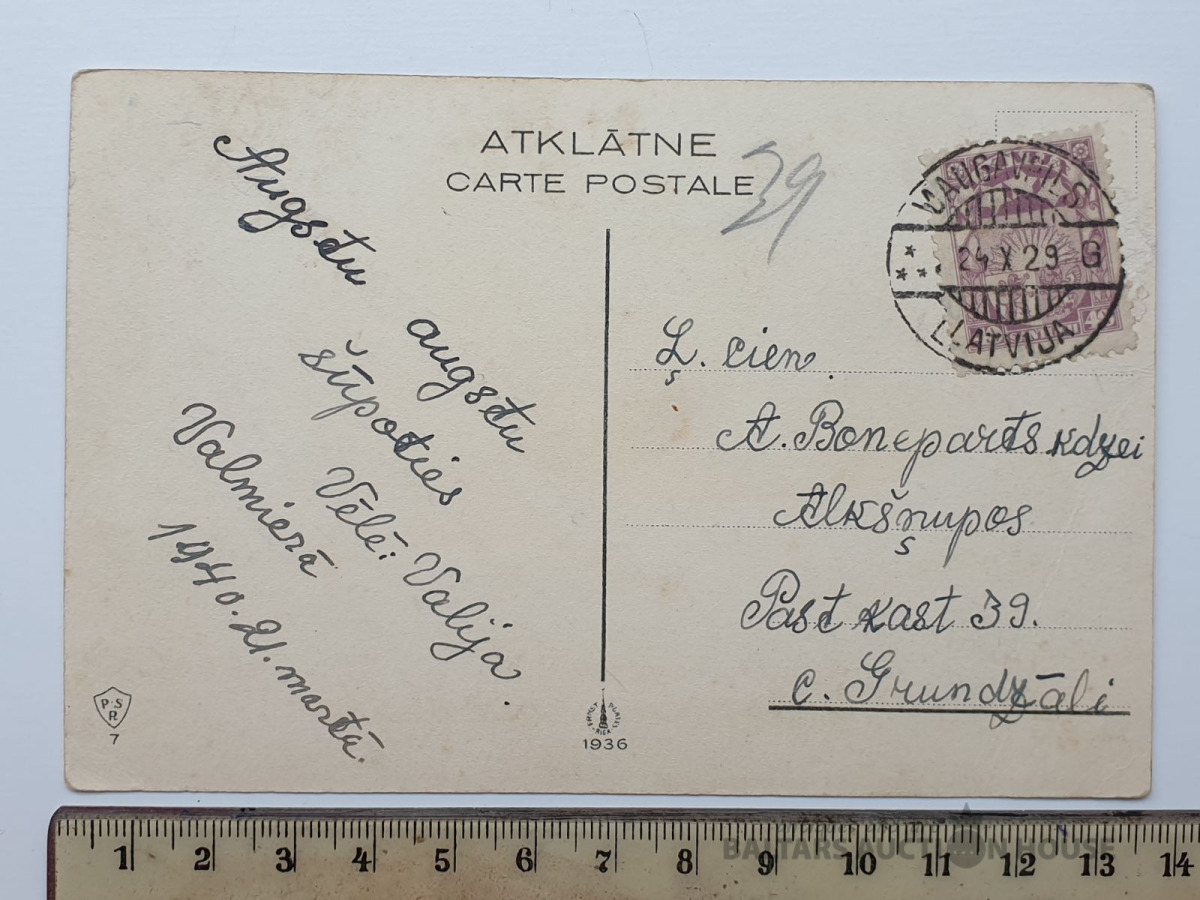 ATKLĀTNE
CARTE POSTALE
29
Augstu
augstu
šūpoties
Vēlē: Valija.
Valmierā
1940. 21. martā.
DAUGAVPILS
24 X 29 G
LATVIJA
40
Ļ. cien.
A. Boneparts kdzei
Alkšņupos
Past kast 39.
c. Grundzāli
P·S
R
7
ERNST PLATES
RIGA
1936
1 2 3 4 5 6 7 8 9 10 11 12 13 14
BALTARS AUCTION HOUSE